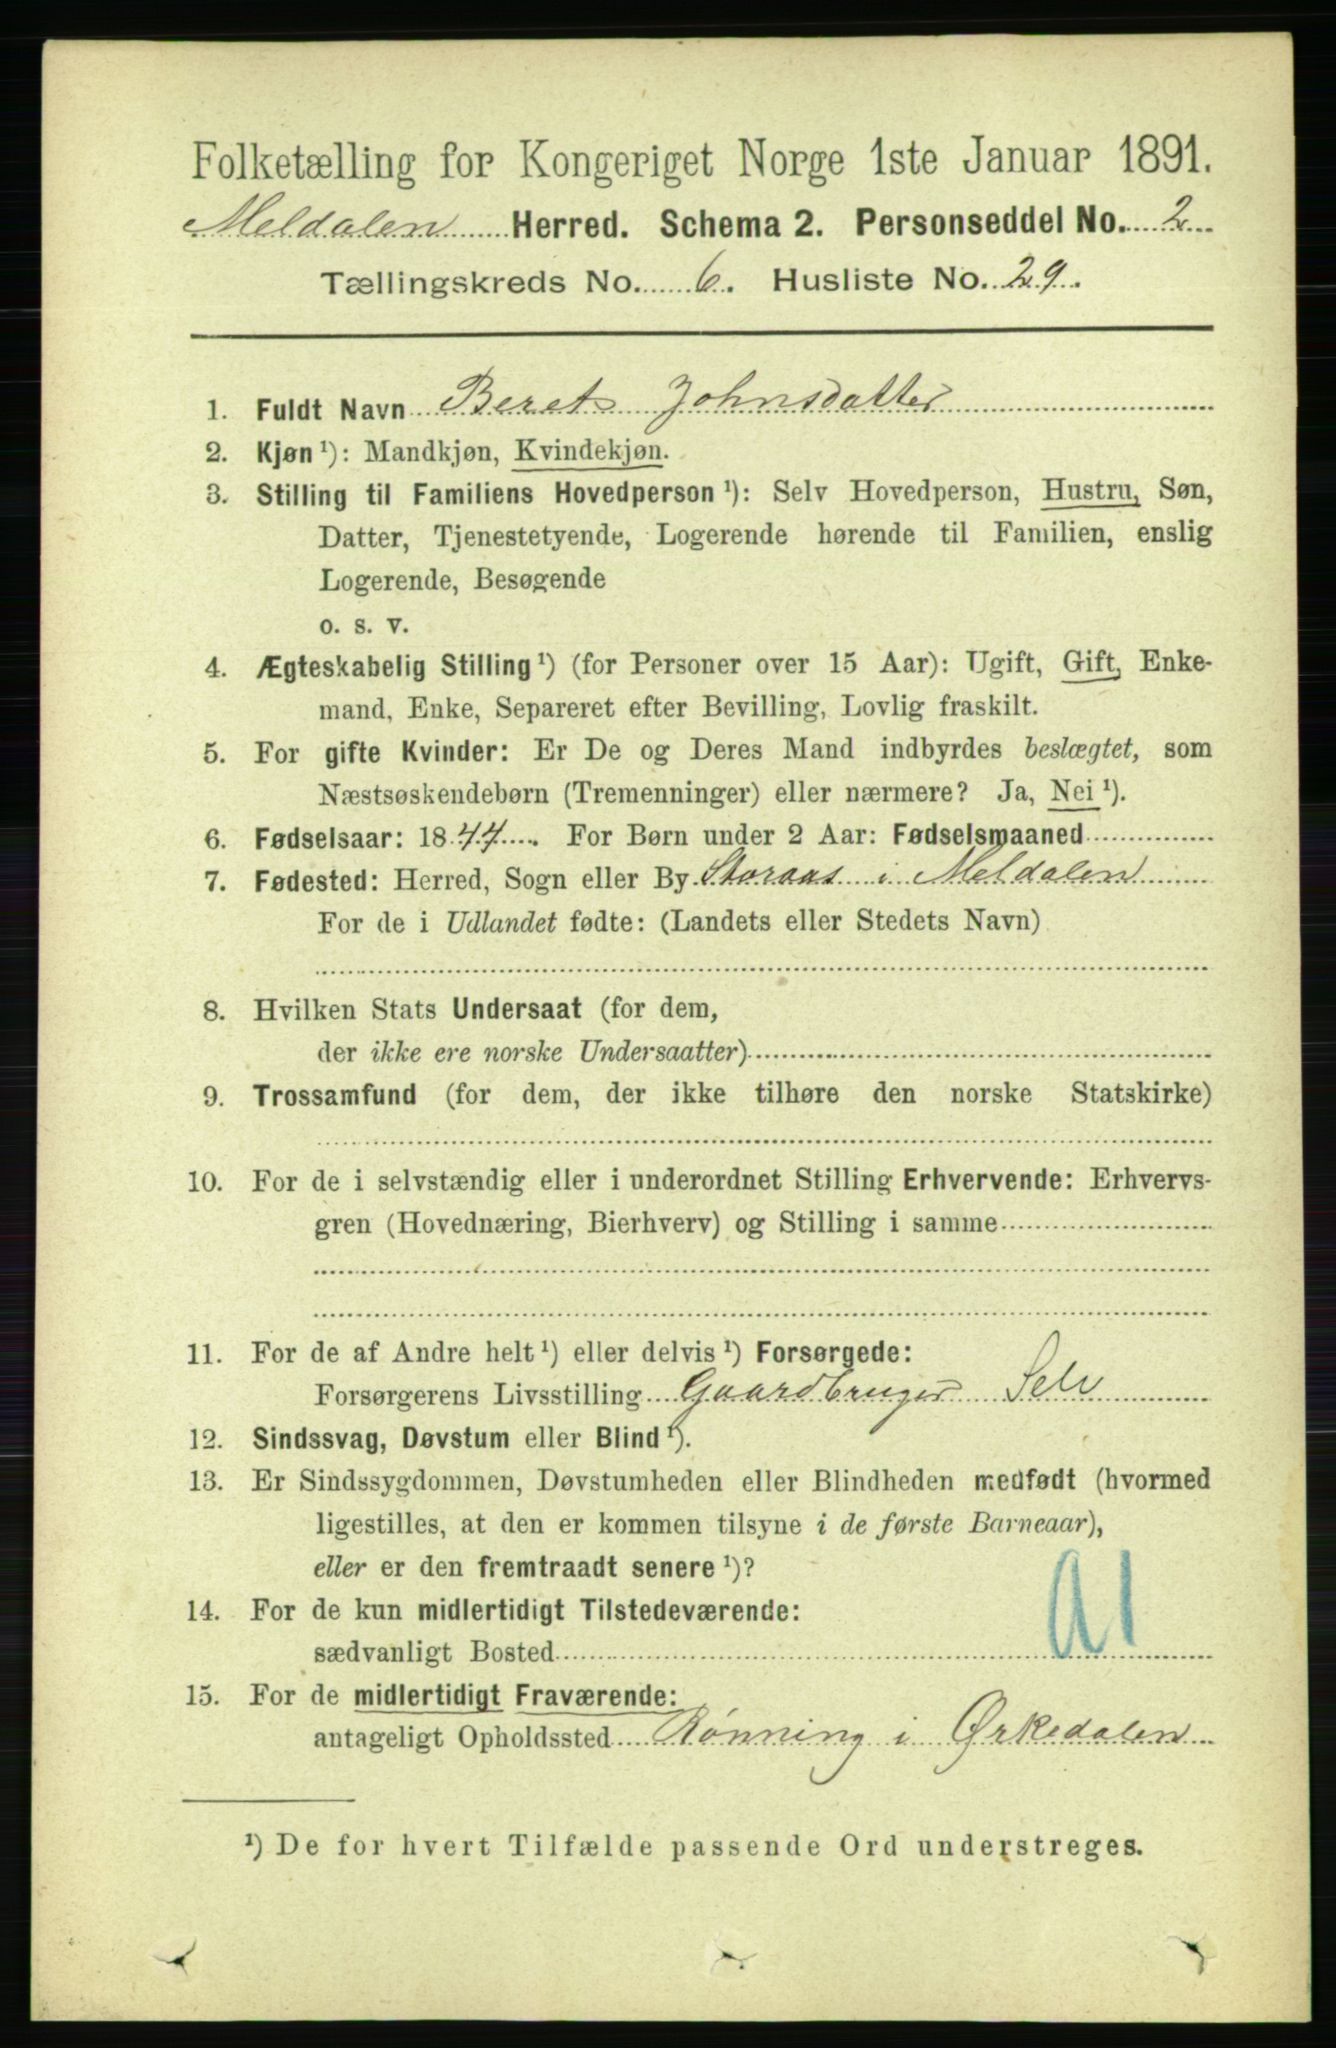 Folketælling for Kongeriget Norge 1ste Januar 1891.
Meldalen Herred. Schema 2. Personseddel No. 2
Tællingskreds No. 6. Husliste No. 29.
1. Fuldt Navn Beret Johnsdatter
2. Kjøn ¹): Mandkjøn, Kvindekjøn.
3. Stilling til Familiens Hovedperson ¹): Selv Hovedperson, Hustru, Søn,
Datter, Tjenestetyende, Logerende hørende til Familien, enslig
Logerende, Besøgende
o. s. v.
4. Ægteskabelig Stilling ¹) (for Personer over 15 Aar): Ugift, Gift, Enke-
mand, Enke, Separeret efter Bevilling, Lovlig fraskilt.
5. For gifte Kvinder: Er De og Deres Mand indbyrdes beslægtet, som
Næstsøskendebørn (Tremenninger) eller nærmere? Ja, Nei ¹).
6. Fødselsaar: 1844. For Børn under 2 Aar: Fødselsmaaned
7. Fødested: Herred, Sogn eller By Storaas i Meldalen
For de i Udlandet fødte: (Landets eller Stedets Navn)
8. Hvilken Stats Undersaat (for dem,
der ikke ere norske Undersaatter)
9. Trossamfund (for dem, der ikke tilhøre den norske Statskirke)
10. For de i selvstændig eller i underordnet Stilling Erhvervende: Erhvervs-
gren (Hovednæring, Bierhverv) og Stilling i samme
11. For de af Andre helt ¹) eller delvis ¹) Forsørgede:
Forsørgerens Livsstilling Gaardbruger Selv
12. Sindssvag, Døvstum eller Blind ¹).
13. Er Sindssygdommen, Døvstumheden eller Blindheden medfødt (hvormed
ligestilles, at den er kommen tilsyne i de første Barneaar),
eller er den fremtraadt senere ¹)?
14. For de kun midlertidigt Tilstedeværende:
sædvanligt Bosted
15. For de midlertidigt Fraværende:
antageligt Opholdssted Rönning i Ørkedalen
¹) De for hvert Tilfælde passende Ord understreges.